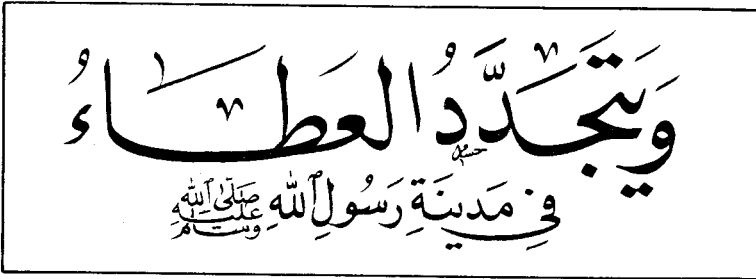 وَيَتَجَدَّدُ العَطَاءُ
فِي مَدِينَةِ رَسُولِ ٱللهِ صَلَّى ٱللهُ عَلَيْهِ وَسَلَّم